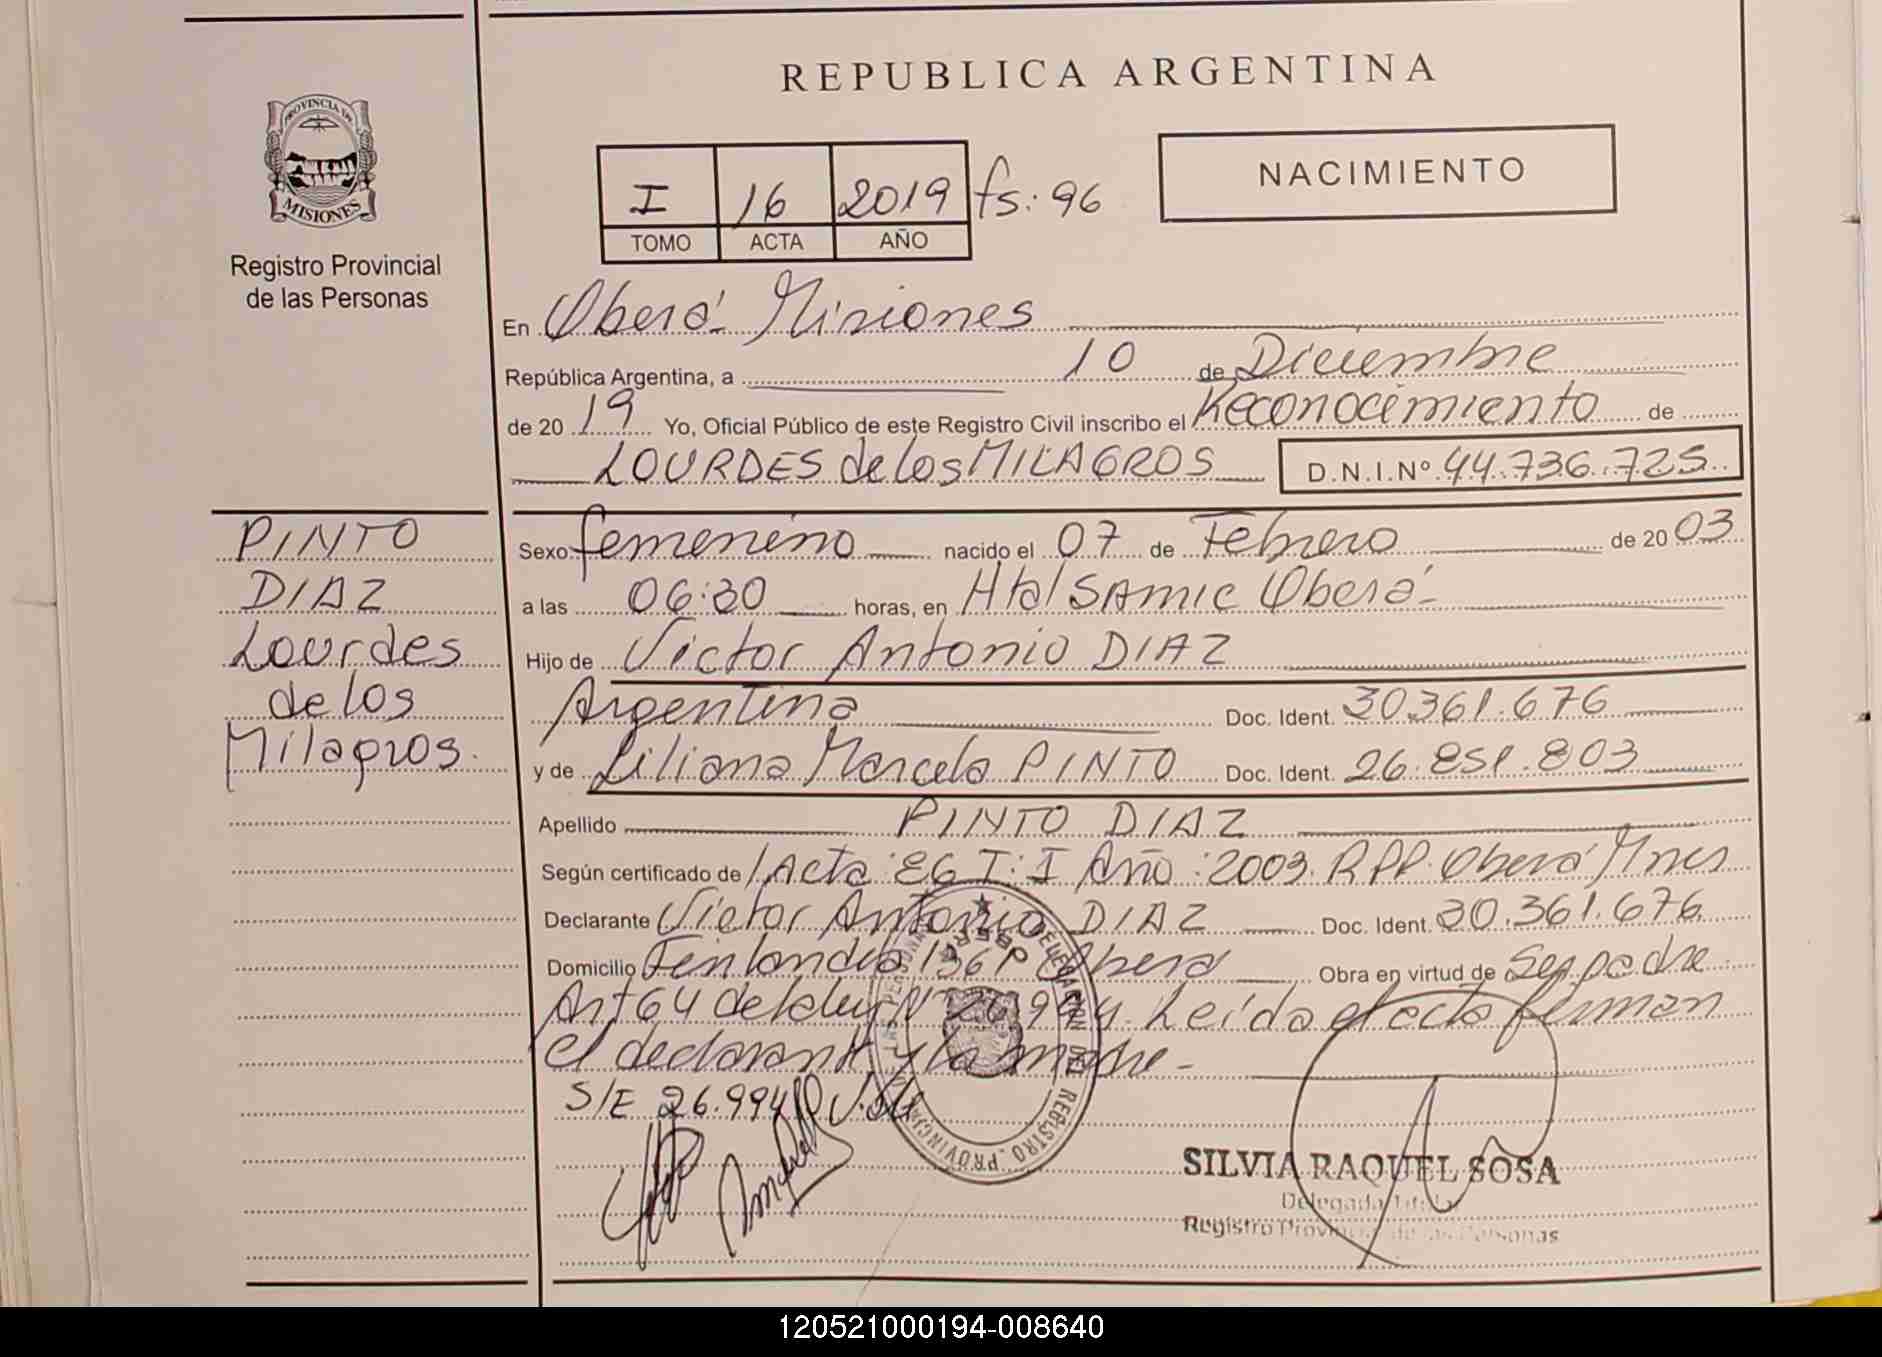 REPUBLICA ARGENTINA
PROVINCIA DE
MISIONES
Registro Provincial
de las Personas
I 16 2019 fs: 96
TOMO ACTA AÑO
NACIMIENTO
En Oberá Misiones
República Argentina, a 10 de Diciembre
de 2019 Yo, Oficial Público de este Registro Civil inscribo el Reconocimiento de
LOURDES de los MILAGROS D.N.I.Nº 44.736.725
PINTO
DIAZ
Lourdes
de los
Milagros.
Sexo femenino nacido el 07 de Febrero de 2003
a las 06:30 horas, en Htal SAMIC Oberá
Hijo de Victor Antonio DIAZ
Argentina Doc. Ident. 30.361.676
y de Liliana Marcela PINTO Doc. Ident. 26.851.803
Apellido PINTO DIAZ
Según certificado de Acta: 86 T: I Año: 2003. RPP. Oberá Mnes
Declarante Victor Antonio DIAZ Doc. Ident. 30.361.676
Domicilio Finlandia 136 Oberá Obra en virtud de Ser padre
Art 64 de la ley Nº 26.994. Leída el acta firman
el declarante y la madre.-
S/E 26.994
DELEGACION DEL REGISTRO PROVINCIAL DE LAS PERSONAS
OBERA
SILVIA RAQUEL SOSA
Delegada Titular
Registro Provincial de las Personas
120521000194-008640